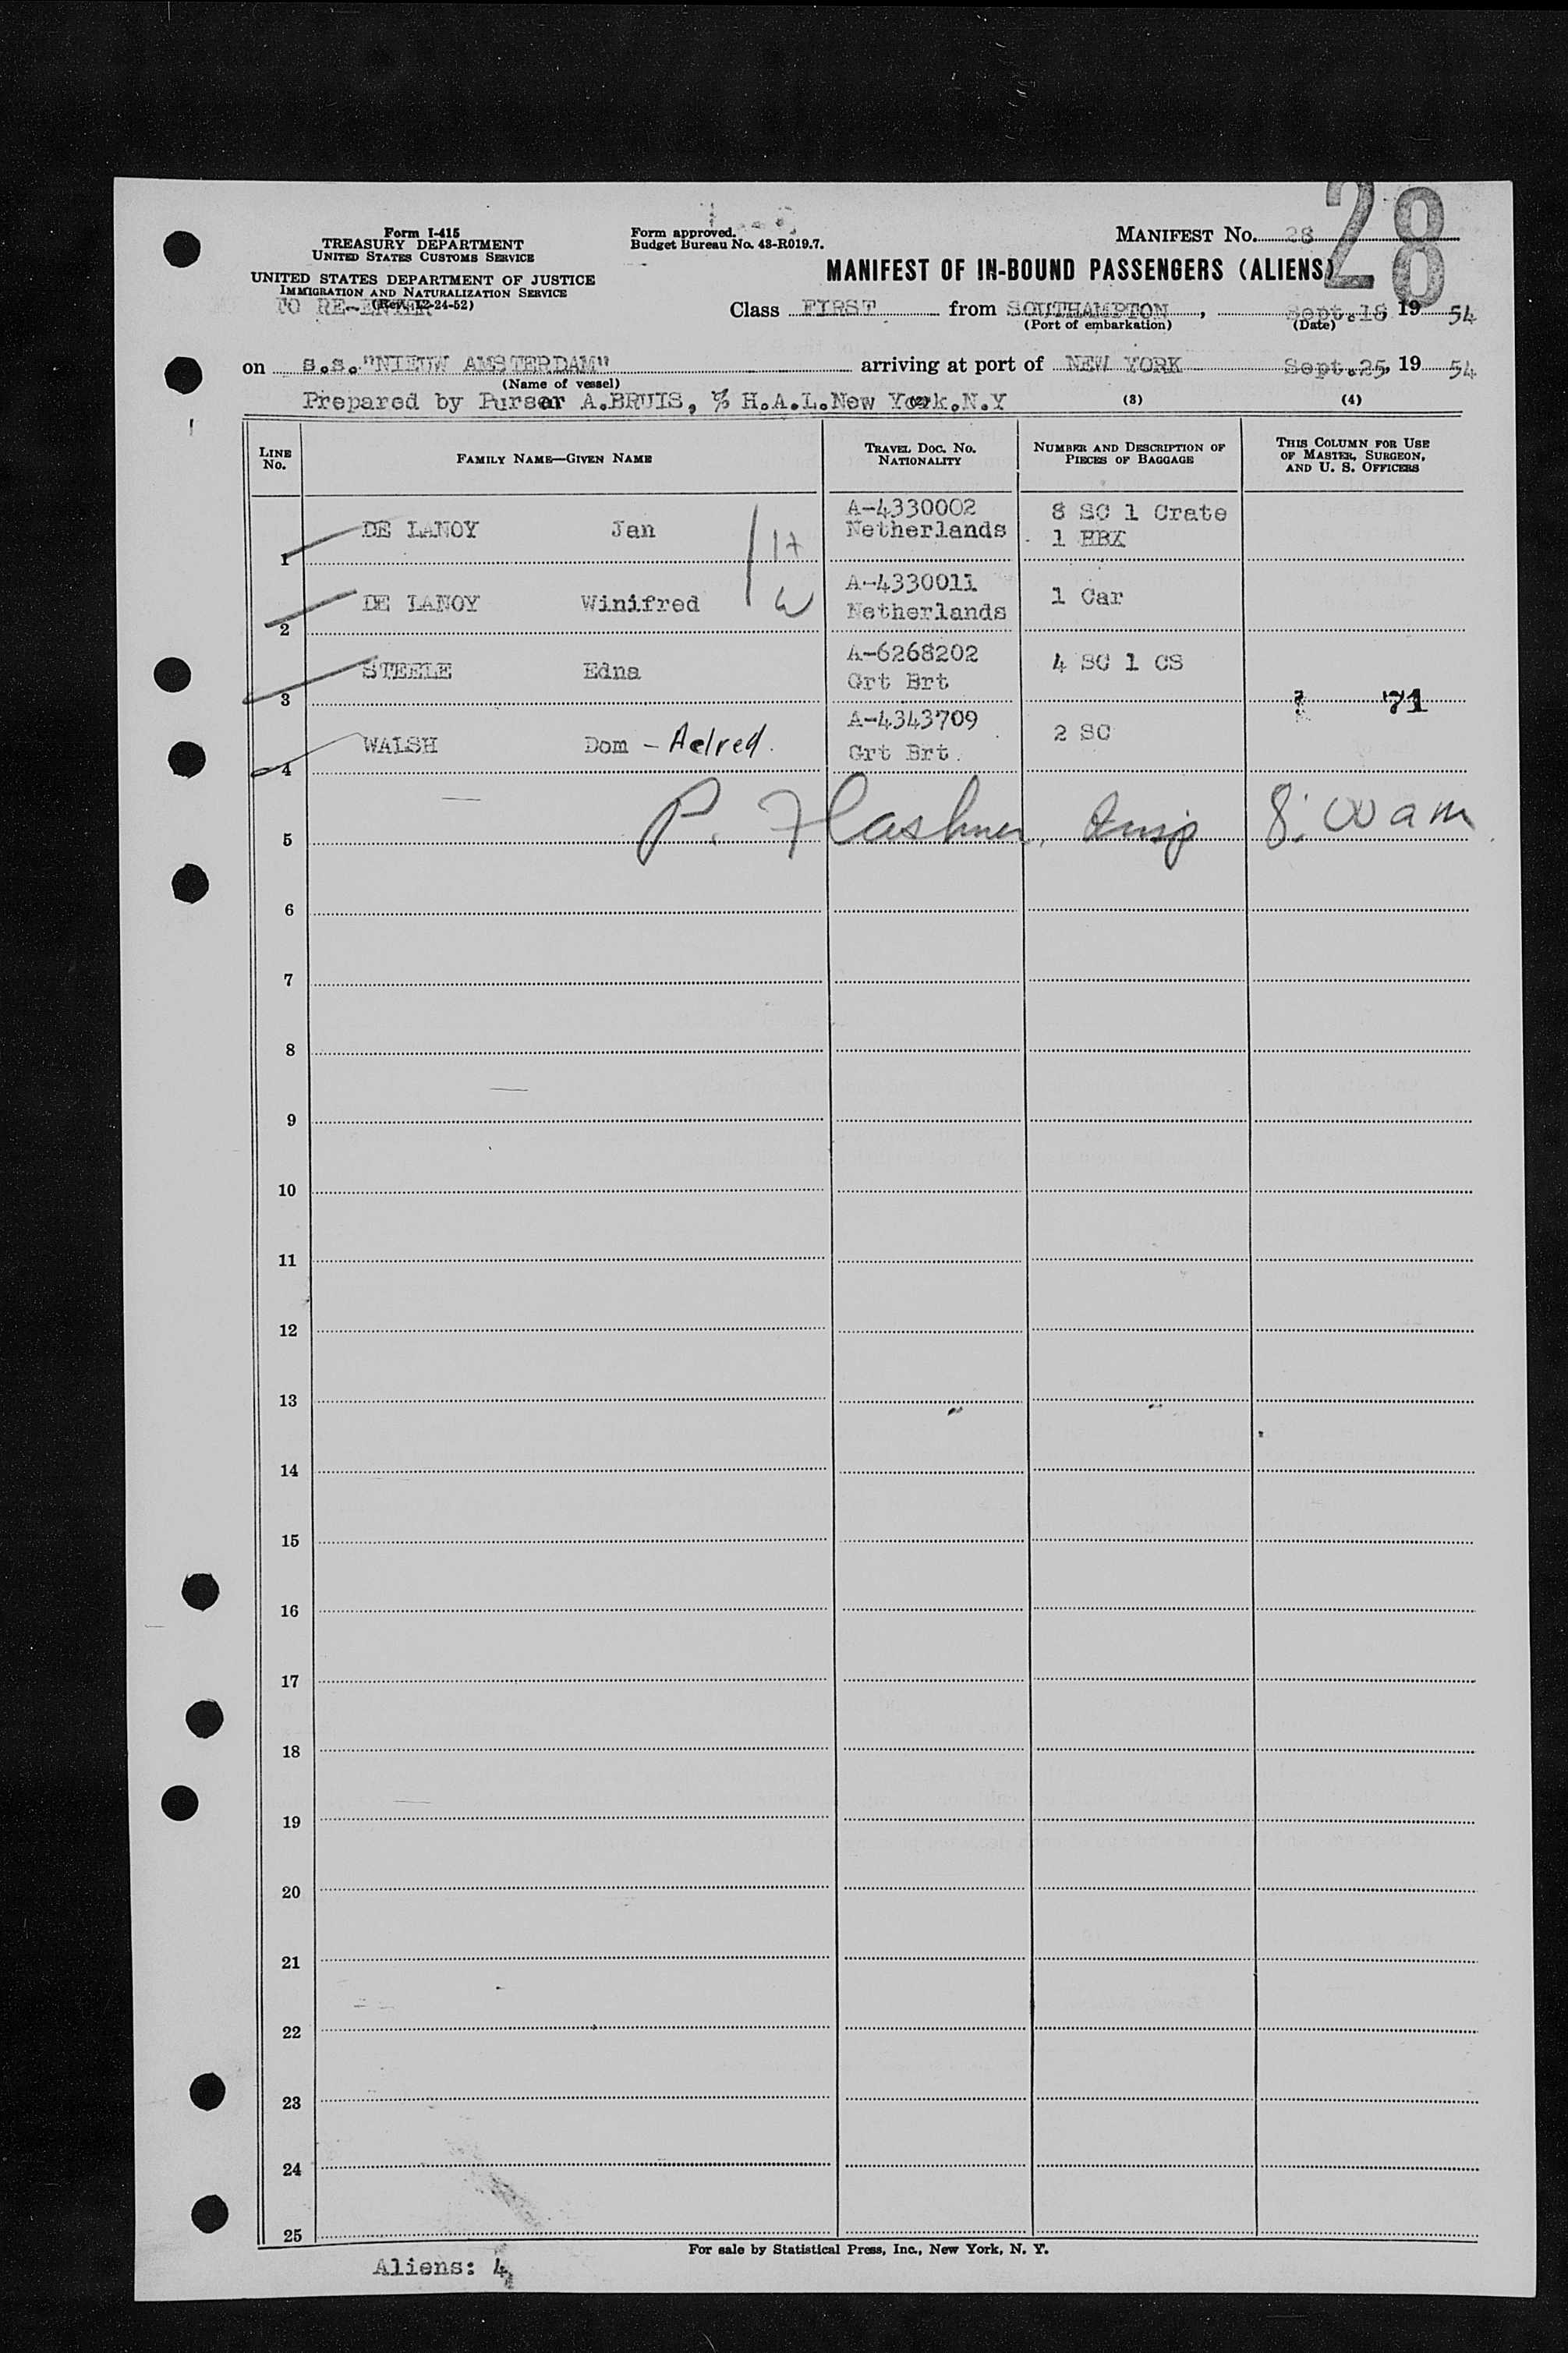 28
Form I-415
TREASURY DEPARTMENT
UNITED STATES CUSTOMS SERVICE
UNITED STATES DEPARTMENT OF JUSTICE
IMMIGRATION AND NATURALIZATION SERVICE
(Rev. 12-24-52)
TO RE-ENTER
Form approved.
Budget Bureau No. 43-R019.7.
MANIFEST No. 28
MANIFEST OF IN-BOUND PASSENGERS (ALIENS)
Class FIRST from SOUTHAMPTON, Sept.18 19 54
(Port of embarkation) (Date)
on s.s."NIEUW AMSTERDAM" arriving at port of NEW YORK Sept.25, 19 54
(Name of vessel)
Prepared by Purser A.BRUIS, % H.A.L.New York.N.Y (2) (3) (4)
LINE No. FAMILY NAME—GIVEN NAME TRAVEL DOC. NO. NATIONALITY NUMBER AND DESCRIPTION OF PIECES OF BAGGAGE THIS COLUMN FOR USE OF MASTER, SURGEON, AND U. S. OFFICERS
1 DE LANOY Jan H A-4330002 Netherlands 8 SC 1 Crate 1 HBX
2 DE LANOY Winifred W A-4330011 Netherlands 1 Car
3 STEELE Edna A-6268202 Grt Brt 4 SC 1 CS 71
4 WALSH Dom - Aelred. A-4343709 Grt Brt 2 SC
5 P. Flashner, Insp 8:00 am
6
7
8
9
10
11
12
13
14
15
16
17
18
19
20
21
22
23
24
25
For sale by Statistical Press, Inc., New York, N. Y.
Aliens: 4